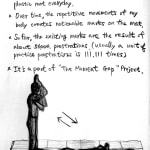 plastic mat everyday.
* Over time, the repetitive movements of my
body creates noticeable marks on the mat.
* So far, the existing marks are the result of
about prostrations (usually a unit of
practice prostrations is 111,111 times)
* It's a part of "The Moment Gap" Project.